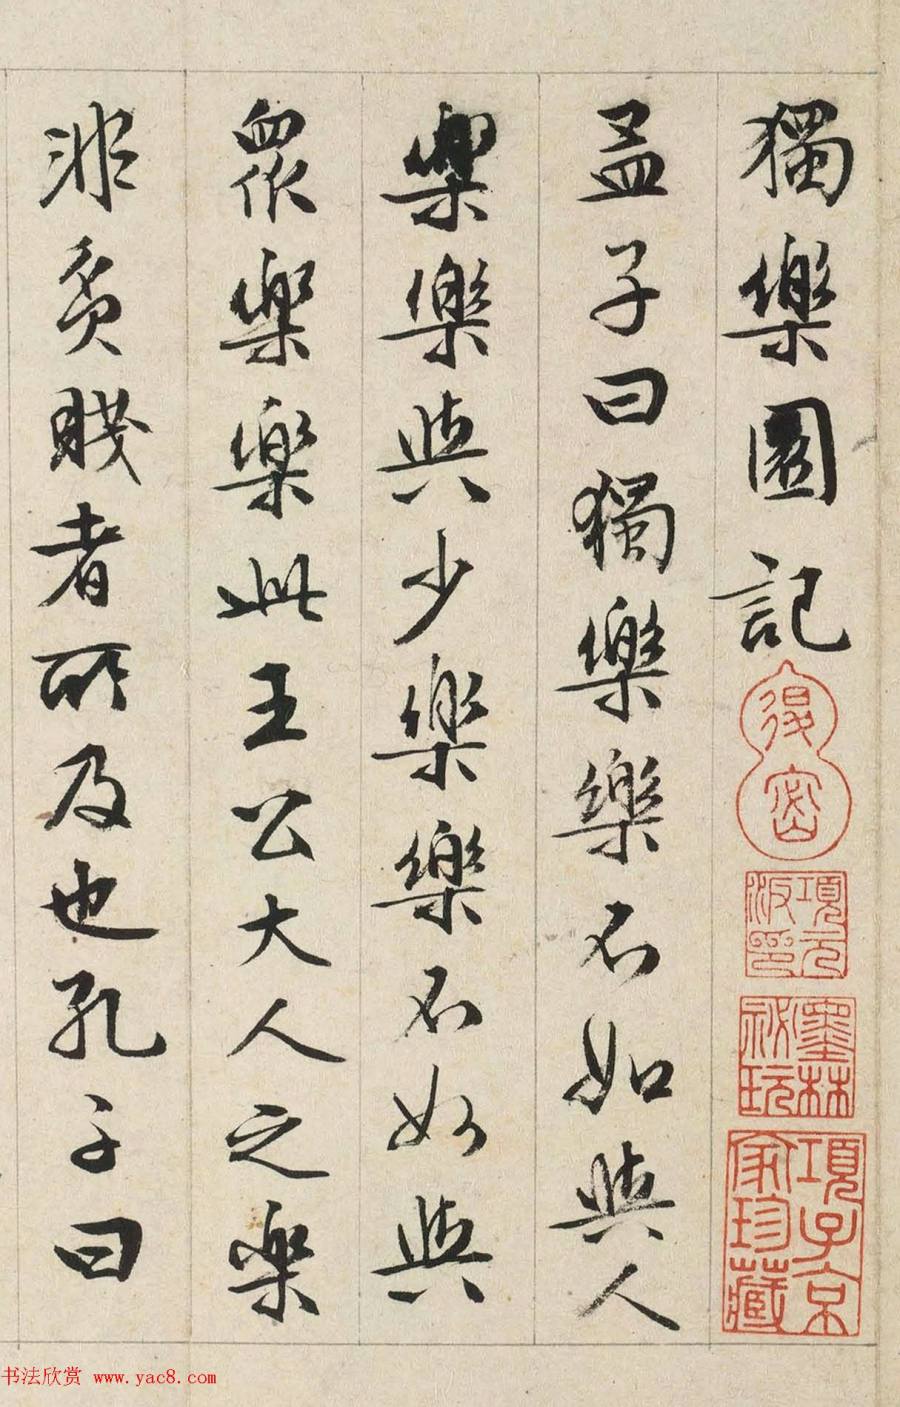 獨樂園記
退密
項元汴印
墨林祕玩
項子京家珍藏
孟子曰獨樂樂不如與人
樂樂與少樂樂不如與
衆樂樂此王公大人之樂
非貧賤者所及也孔子曰
书法欣赏 www.yac8.com